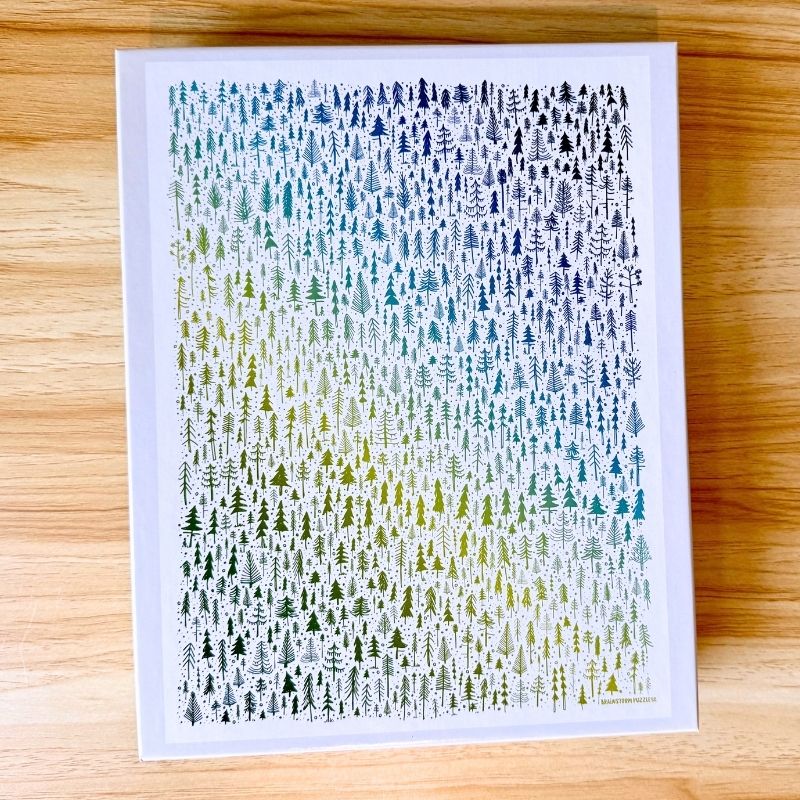 BRAINSTORM PUZZLE CO.